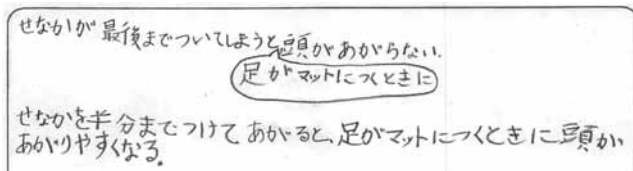 せなかが最後までついてしまうと頭があがらない.
足がマットにつくときに
せなかを半分までつけてあがると、足がマットにつくときに頭が
あがりやすくなる。